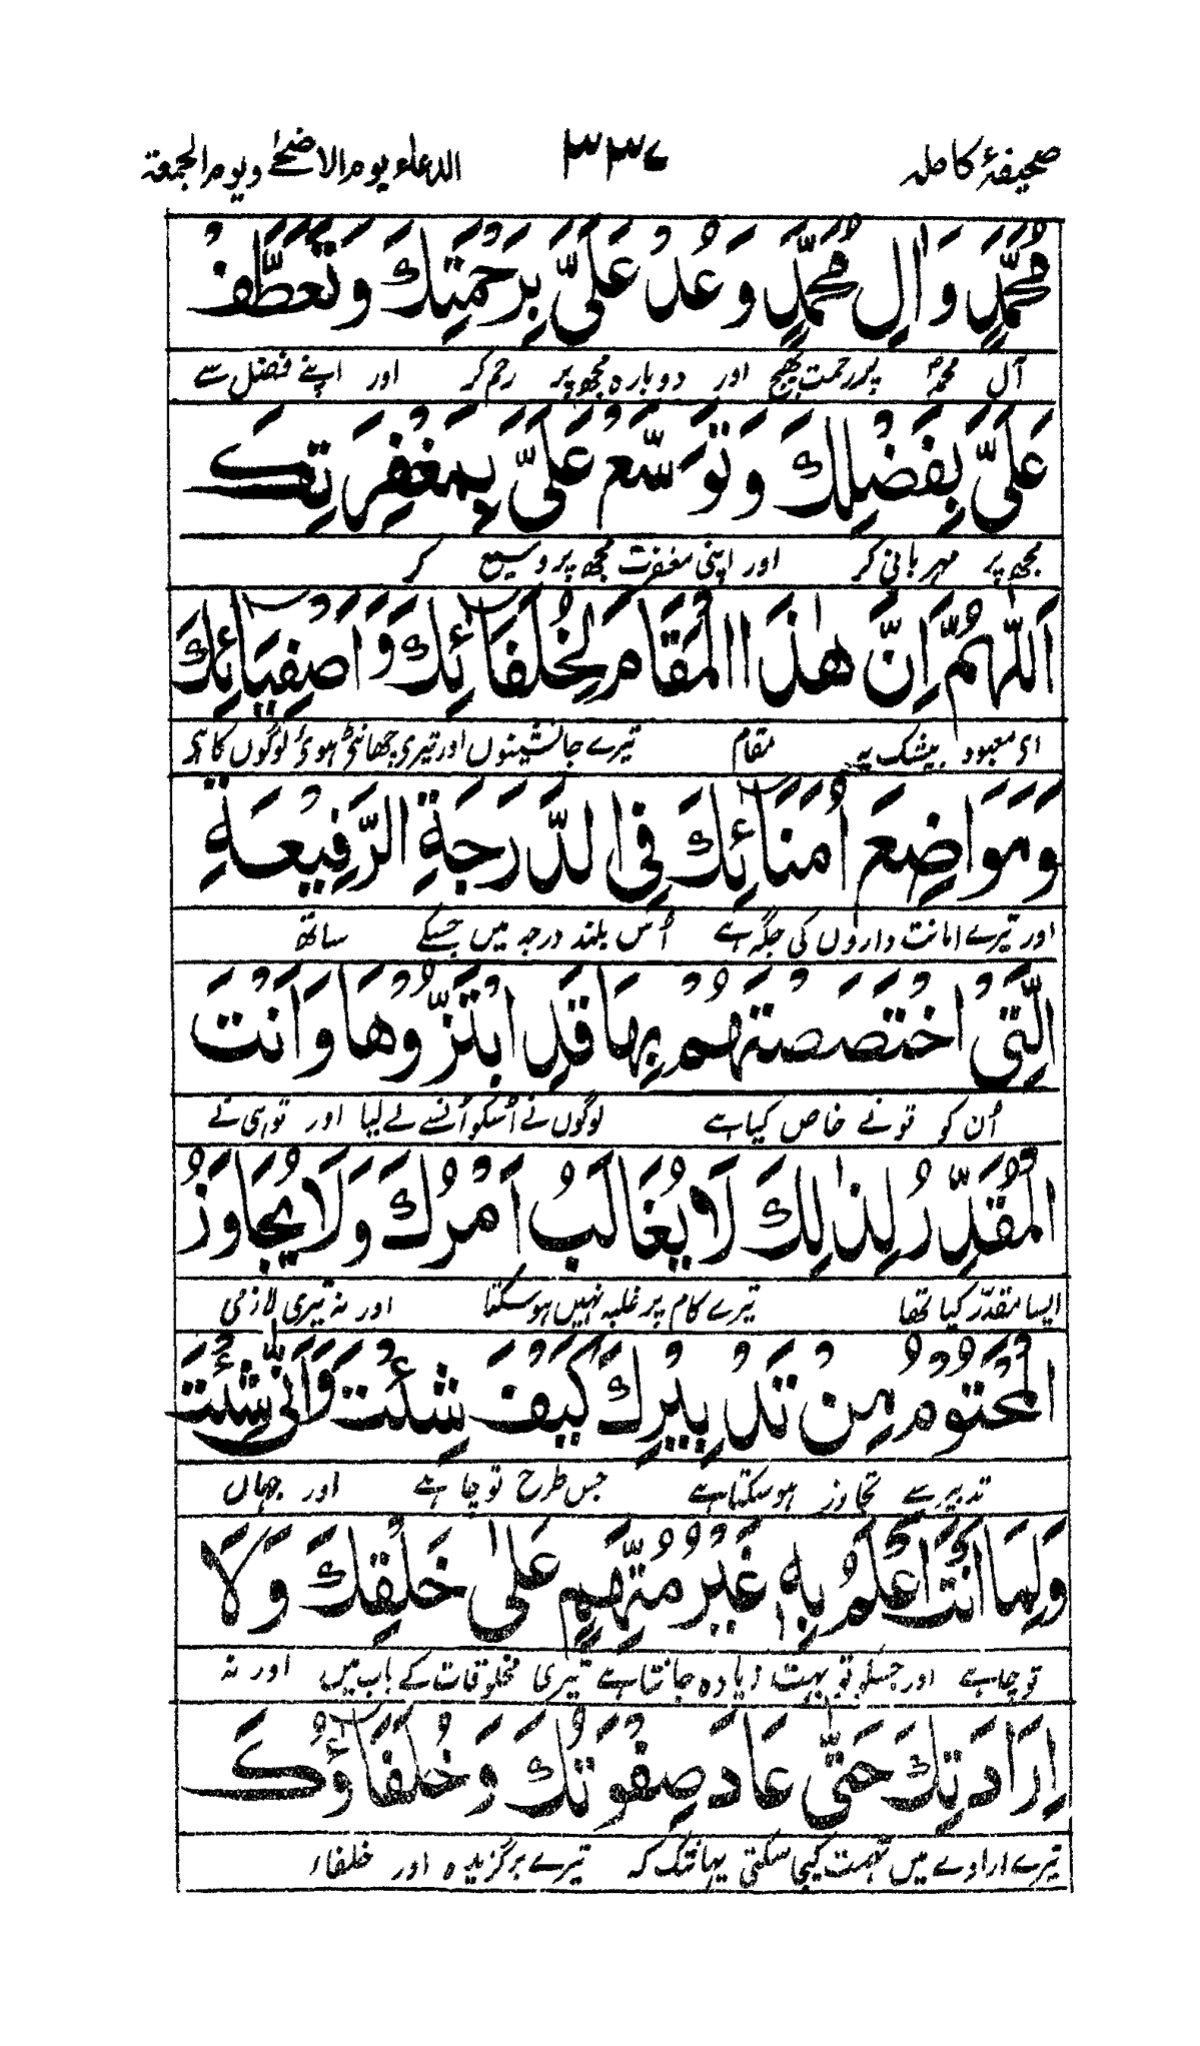 صحیفۂ کاملہ ۳۳۷ الدعاء یوم الاضحیٰ ویوم الجمعۃ
مُحَمَّدٍ وَ اٰلِ مُحَمَّدٍ وَ عُدْ عَلَیَّ بِرَحْمَتِكَ وَ تَعَطَّفْ
آل محمدؐ پر رحمت بھیج اور دوبارہ مجھ پر رحم کر اور اپنے فضل سے
عَلَیَّ بِفَضْلِكَ وَ تَوَسَّعْ عَلَیَّ بِمَغْفِرَتِكَ
مجھ پر مہربانی کر اور اپنی مغفرت مجھ پر وسیع کر
اَللّٰهُمَّ اِنَّ هٰذَا الْمَقَامَ لِخُلَفَآئِكَ وَ اَصْفِیَآئِكَ
ای معبود بیشک یہ مقام تیرے جانشینوں اور تیری چھانٹی ہوئ لوگوں کا ہی
وَ مَوَاضِعَ اُمَنَآئِكَ فِی الدَّرَجَةِ الرَّفِیْعَةِ
اور تیرے امانت داروں کی جگہ ہے اُس بلند درجہ میں جسکے ساتھ
الَّتِیْ اخْتَصَصْتَهُمْ بِهَا قَدِ ابْتَزُّوْهَا وَ اَنْتَ
اُن کو تو نے خاص کیا ہے لوگوں نے اُسکو اُنسے لے لیا اور تو ہی نے
الْمُقَدِّرُ لِذٰلِكَ لَا یُغَالَبُ اَمْرُكَ وَ لَا یُجَاوَزُ
ایسا مقدّر کیا تھا تیرے کام پر غلبہ نہیں ہو سکتا اور نہ تیری لازمی
الْمَحْتُوْمُ مِنْ تَدْبِیْرِكَ كَیْفَ شِئْتَ وَ اَنّٰی شِئْتَ
تدبیر سے تجاوز ہو سکتا ہے جس طرح تو چاہے اور جہاں
وَ لِمَا اَنْتَ اَعْلَمُ بِهٖ غَیْرُ مُتَّهَمٍ عَلٰی خَلْقِكَ وَ لَا
تو چاہے اور جسکو تو بہت زیادہ جانتا ہے تیری مخلوقات کے باب میں اور نہ
اِرَادَتِكَ حَتّٰی عَادَ صِفْوَتُكَ وَ خُلَفَآؤُكَ
تیرے ارادے میں تہمت کیجا سکتی یہانتک کہ تیرے برگزیدہ اور خلفاء